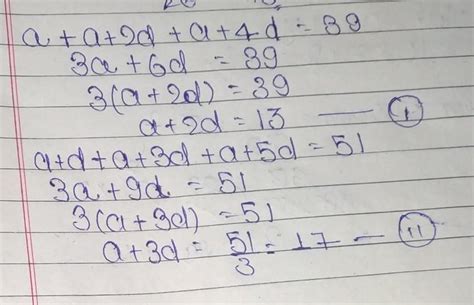 a + a+2d + a + 4d = 39
3a + 6d = 39
3(a+2d) = 39
a+2d = 13 — (I)
a+d + a+3d + a+5d = 51
3a + 9d = 51
3(a+3d) = 51
a+3d = 51/3 = 17 — (II)